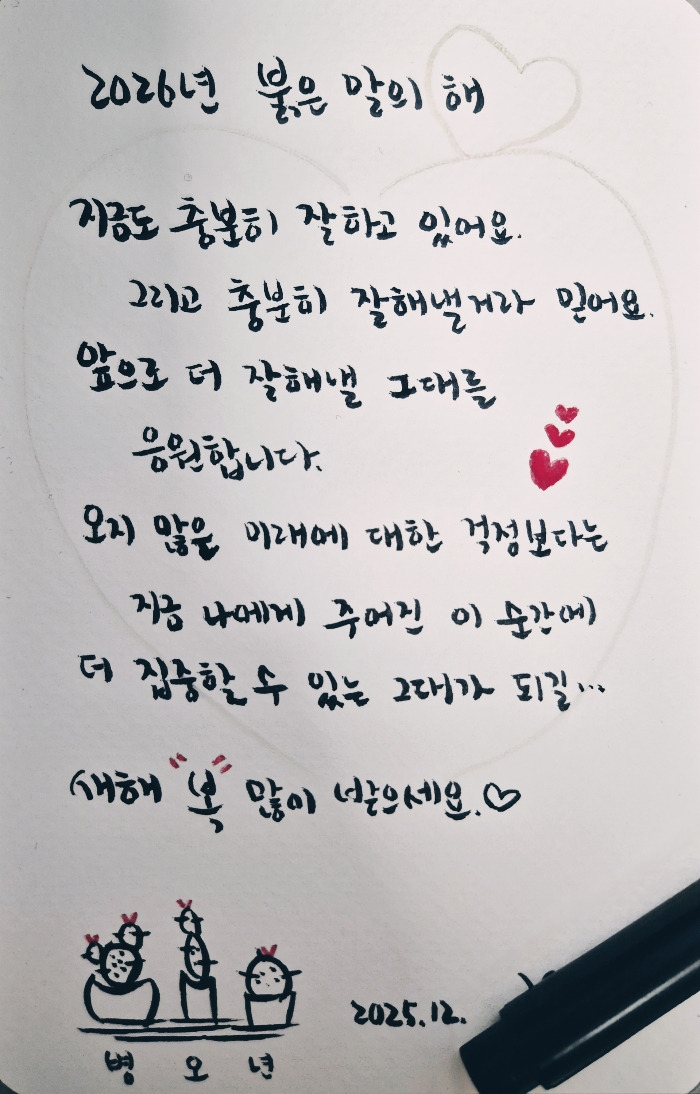 2026년 붉은 말의 해
지금도 충분히 잘하고 있어요.
그리고 충분히 잘해낼거라 믿어요.
앞으로 더 잘해낼 그대를
응원합니다.
오지 많은 미래에 대한 걱정보다는
지금 나에게 주어진 이 순간에
더 집중할 수 있는 그대가 되길...
새해 "복" 많이 받으세요.♡
2025.12.
병 오 년